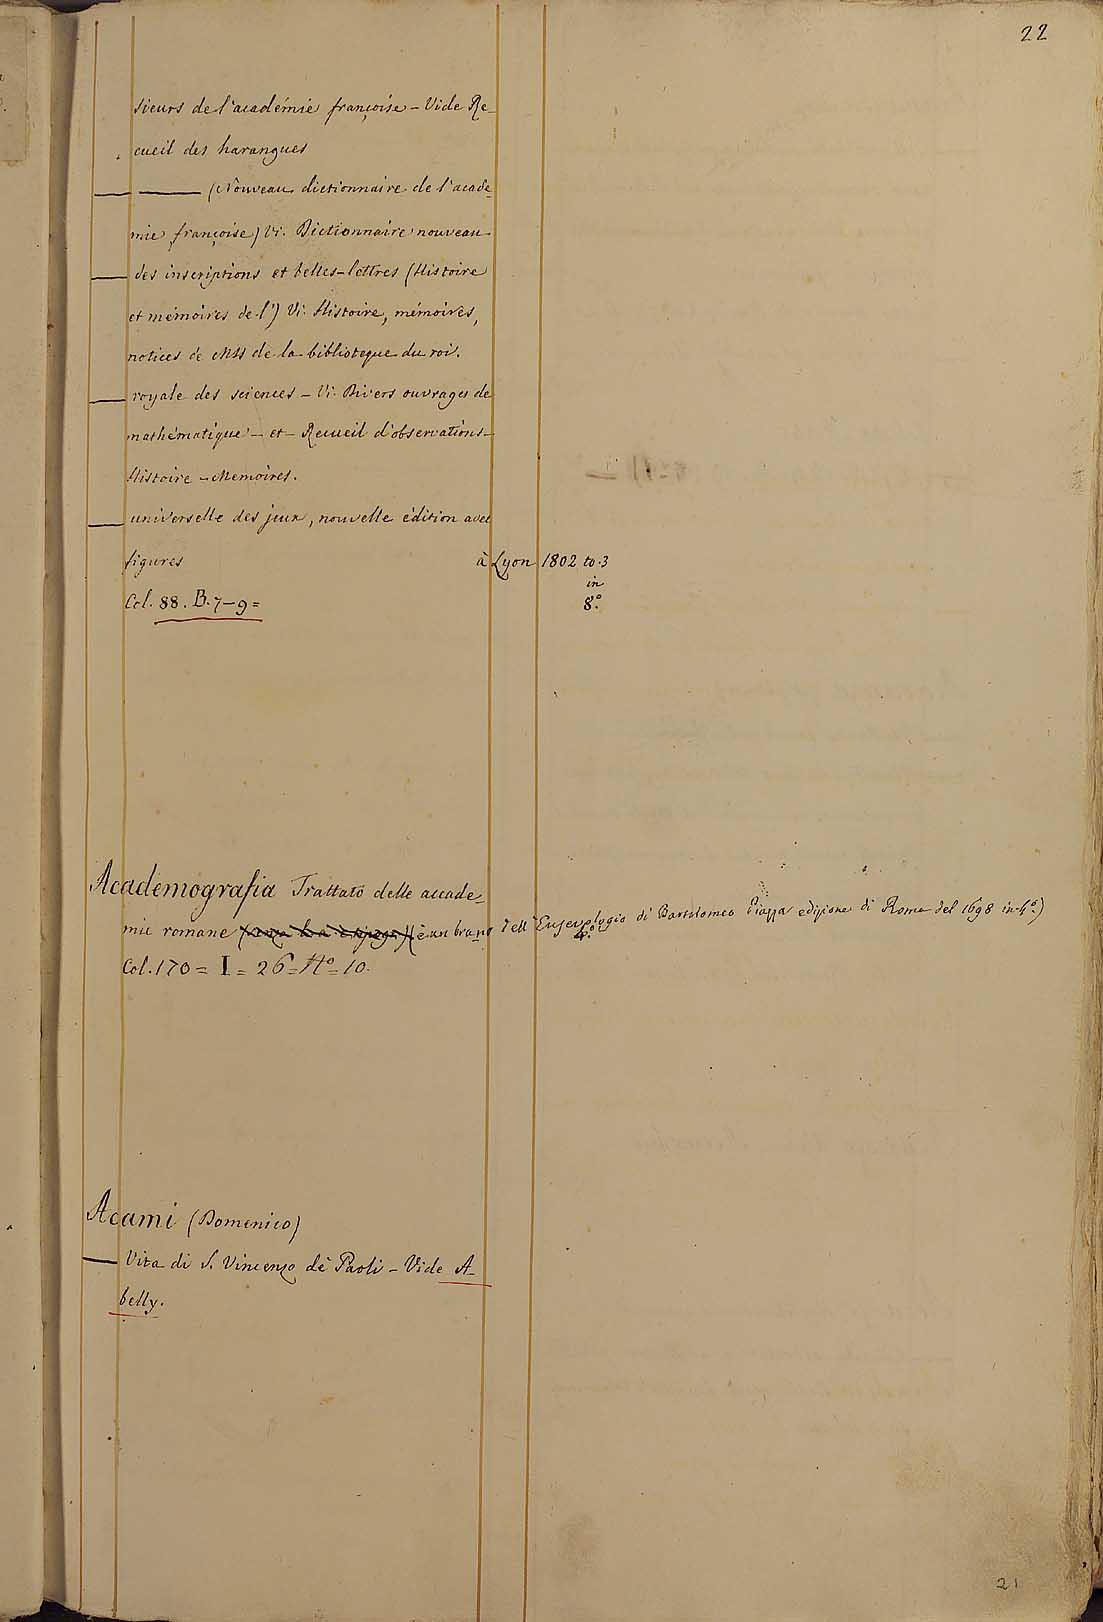 22
sieurs de l'académie françoise - Vide Re-
cueil des harangues
(Nouveau dictionnaire de l'acade-
mie françoise) Vi. Dictionnaire nouveau
des inscriptions et belles-lettres (Histoire
et mémoires de l') Vi. Histoire, mémoires,
notices de MSS de la biblioteque du roi.
royale des sciences - Vi. Divers ouvrages de
mathématique - et - Recueil d'observations -
Histoire - Memoires.
universelle des jeux, nouvelle édition avec
figures à Lyon 1802 to. 3
in
Col. 88. B. 7-9 = 8.°
Academografia Trattato delle accade-
mie romane (è un brano dell'Eusevologio di Bartolomeo Piazza edizione di Roma del 1698 in-4.°)
4.°
Col. 170 = I = 26 = N.° = 10.
Acami (Domenico)
Vita di S. Vincenzo de Paoli - Vide A-
belly.
21